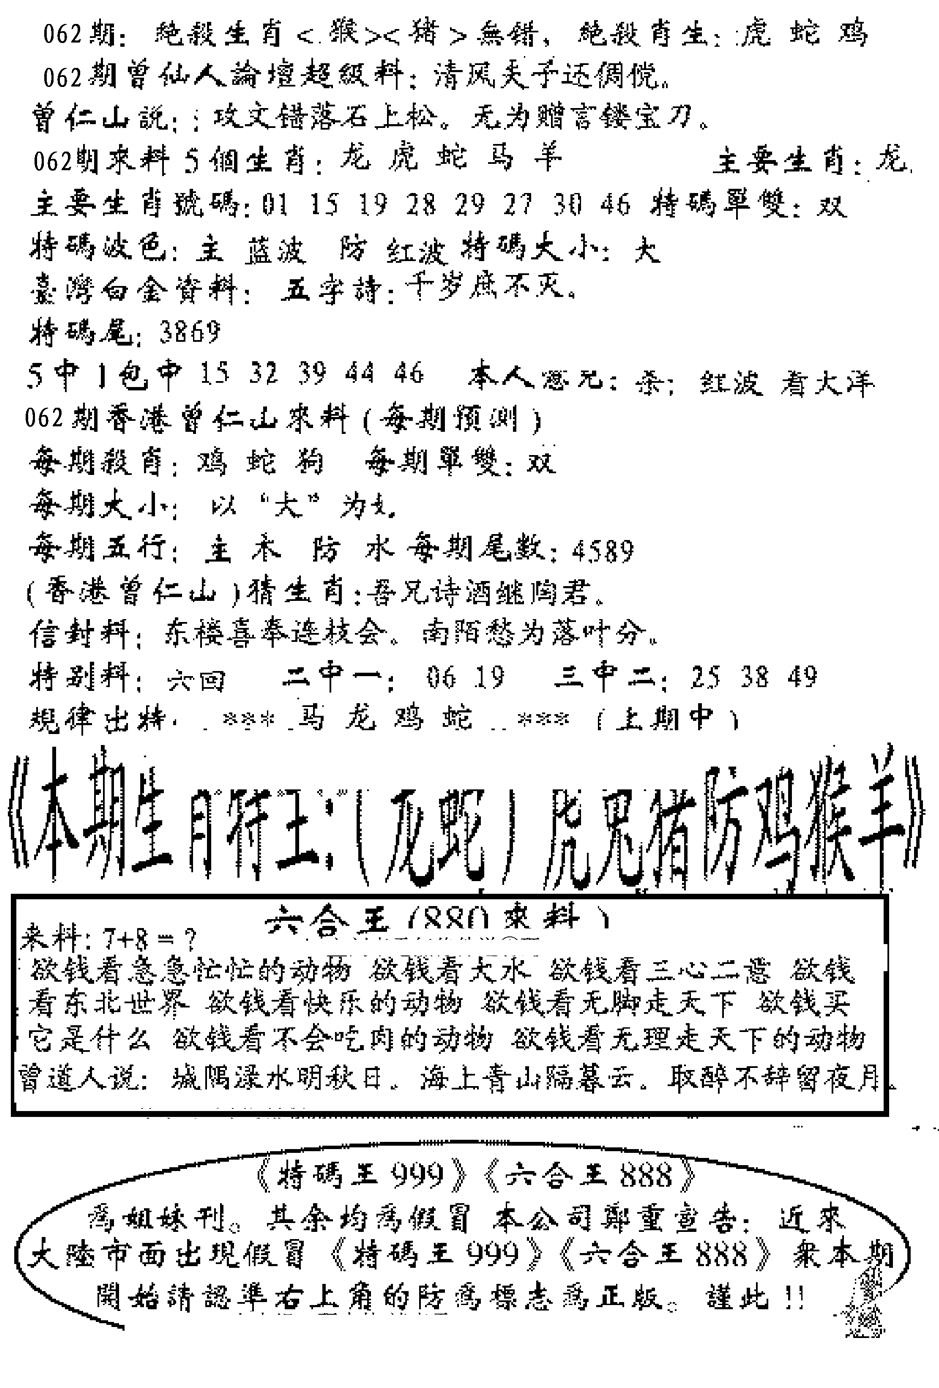 062期：絶殺生肖<猴><猪>無錯，絶殺肖生：虎 蛇 鸡
062期曾仙人論壇超級料：清风天子还倜傥。
曾仁山説：攻文错落石上松。无为赠言镂宝刀。
062期來料5個生肖：龙 虎 蛇 马 羊 主要生肖：龙
主要生肖號碼：01 15 19 28 29 27 30 46 特碼單雙：双
特碼波色：主 蓝波 防 红波 特碼大小：大
臺灣白金資料： 五字詩：千岁庶不灭。
特碼尾：3869
5中1包中 15 32 39 44 46 本人 杀：红波 看大洋
062期香港曾仁山來料(每期預測)
每期殺肖：鸡 蛇 狗 每期單雙：双
每期大小： 以“大”为
每期五行：主 木 防 水 每期尾数：4589
(香港曾仁山)猜生肖：吾兄诗酒继陶君。
信封料：东楼喜奉连枝会。南陌愁为落叶分。
特别料：六回 二中一：06 19 三中二：25 38 49
規律出特 *** 马 龙 鸡 蛇 *** (上期中)
《本期生肖特王:(龙蛇)虎兔猪防鸡猴羊》
六合王(880來料)
来料：7+8=?
欲钱看急急忙忙的动物 欲钱看大水 欲钱看三心二意 欲钱
看东北世界 欲钱看快乐的动物 欲钱看无脚走天下 欲钱买
它是什么 欲钱看不会吃肉的动物 欲钱看无理走天下的动物
曾道人说：城隅渌水明秋日。海上青山隔暮云。取醉不辞留夜月。
《特碼王999》《六合王888》
爲姐妹刊。其余均爲假冒 本公司鄭重宣告：近來
大陸市面出現假冒《特碼王999》《六合王888》衆本期
開始請認準右上角的防爲標志爲正版。謹此!!